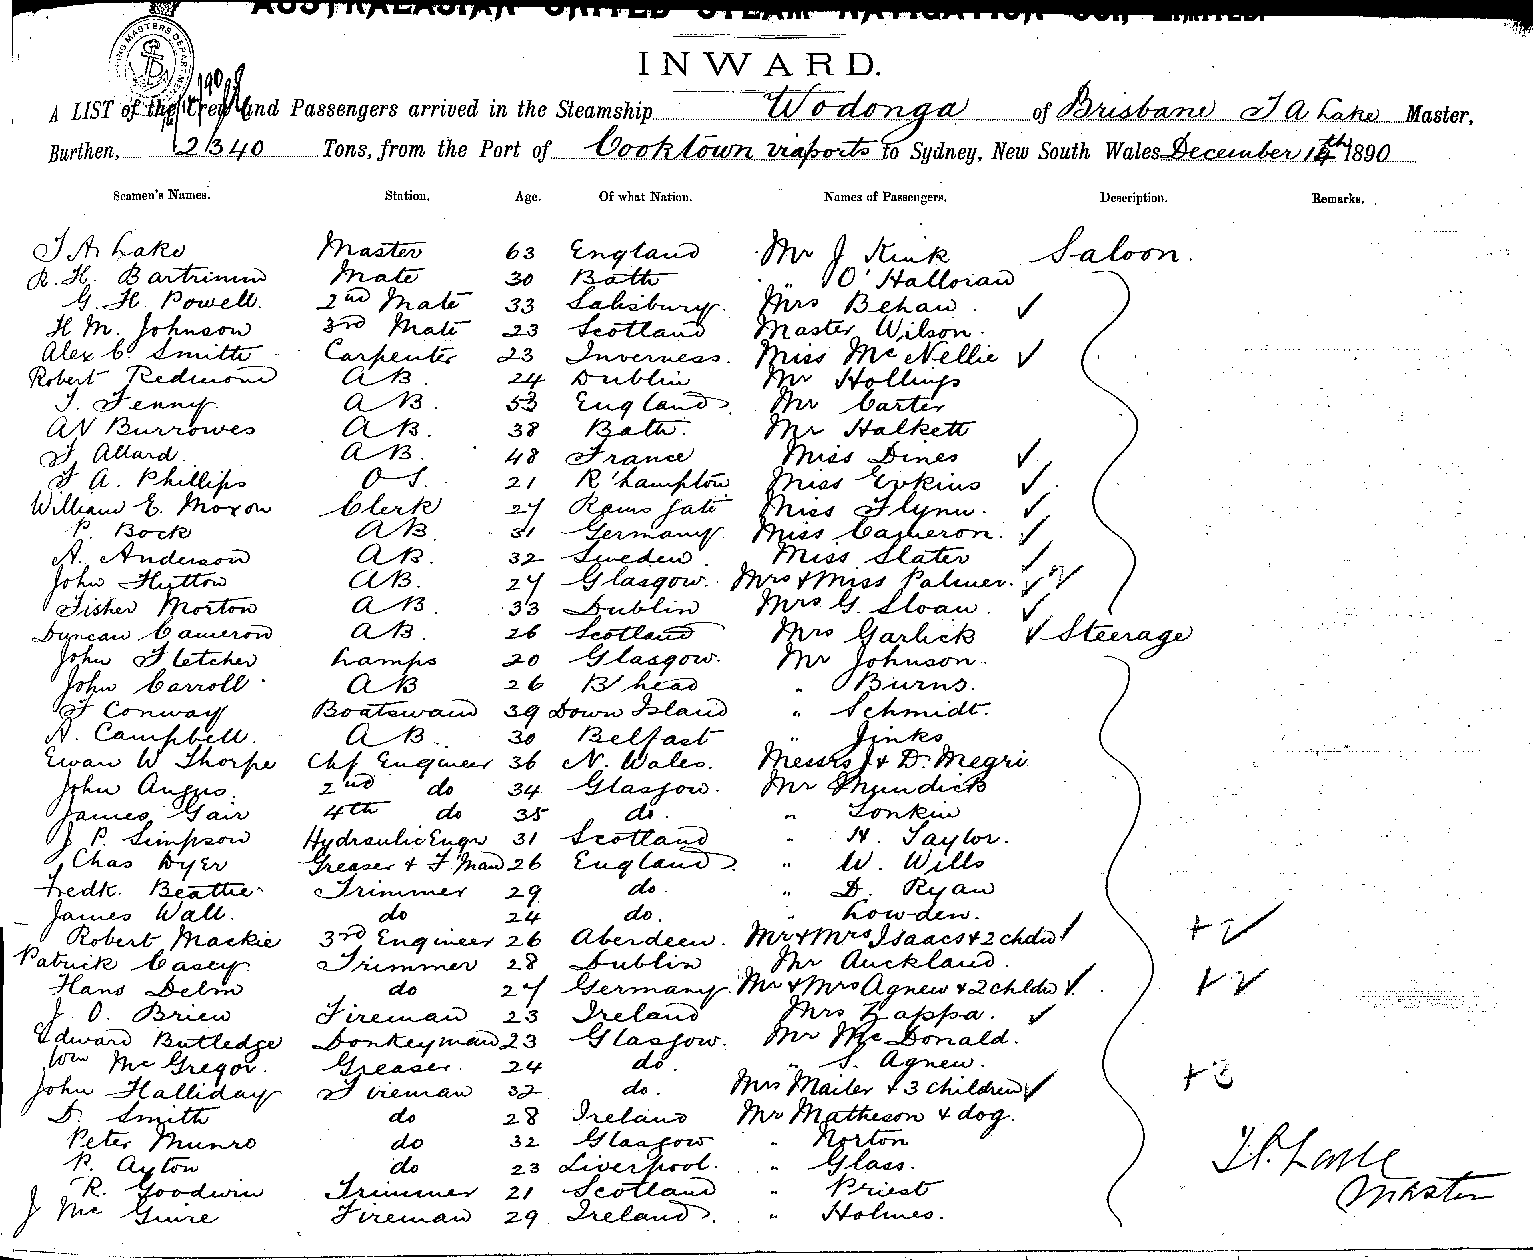 AUSTRALASIAN UNITED STEAM NAVIGATION CO., LIMITED.
INWARD.
A LIST of the Crew and Passengers arrived in the Steamship Wodonga of Brisbane T A Lake Master,
Burthen, 2340 Tons, from the Port of Cooktown via ports to Sydney, New South Wales December 14th 1890
Seamen's Names. Station. Age. Of what Nation. Names of Passengers. Description. Remarks.
T A Lake Master 63 England Mr J Kink Saloon.
R. H. Bartrimm Mate 30 Bath " O'Halloran
G. H. Powell. 2nd Mate 33 Salisbury. Mrs Behan. ✓
H. M. Johnson 3rd Mate 23 Scotland Master Wilson.
Alex C. Smith Carpenter 23 Inverness. Miss McNellie ✓
Robert Redmond AB. 24 Dublin Mr Hollings
T. Fenny. AB. 53 England Mr Carter
AV Burrowes AB. 38 Bath. Mr Halkett
F Allard. AB. 48 France Miss Dines ✓
F A. Phillips OS. 21 R'hampton Miss Erkins ✓
William E. Moxon Clerk 27 Ramsgate Miss Flynn. ✓
P. Bock AB. 31 Germany Miss Cameron. ✓
A. Anderson AB. 32 Sweden. Miss Slater ✓
John Hutton AB. 27 Glasgow. Mrs & Miss Palmer. ✓ 2
Fisher Morton AB. 33 Dublin Mrs G. Sloan. ✓
Duncan Cameron AB. 26 Scotland Mrs Garlick ✓ Steerage
John Fletcher Lamps 20 Glasgow. Mr Johnson.
John Carroll AB 26 B'head " Burns.
F Conway Boatswain 39 Down Island " Schmidt.
A. Campbell. AB. 30 Belfast " Jinks
Ewan W Thorpe Chf Engineer 36 N. Wales. Messrs J & D. Megri
John Angus. 2nd do 34 Glasgow. Mr Mundick
James Gair 4th do 35 do. " Lonkin
J P. Simpson Hydraulic Engr 31 Scotland " H. Taylor.
Chas Dyer Greaser & F Man 26 England " W. Wills
Fredk. Beattie Trimmer 29 do. " D. Ryan
James Wall. do 24 do. " Lowden.
Robert Mackie 3rd Engineer 26 Aberdeen. Mr & Mrs Isaacs & 2 chdn ✓ +2 ✓
Patrick Casey. Trimmer 28 Dublin Mr Auckland.
Hans Delm do 27 Germany. Mr & Mrs Agnew & 2 childn ✓ +2
J. O. Brien Fireman 23 Ireland Mrs Zappa. ✓
Edward Butledge Donkeyman 23 Glasgow. Mr McDonald.
Wm McGregor. Greaser. 24 do. " S. Agnew.
John Halliday Fireman 32 do. Mrs Mailer & 3 children ✓ +3
D. Smith do 28 Ireland Mr Matheson & dog.
Peter Munro do 32 Glasgow " Norton
P. Ayton do 23 Liverpool. " Glass.
R. Goodwin Trimmer 21 Scotland " Priest
J McGuire Fireman 29 Ireland. " Holmes.
T A. Lake
Master